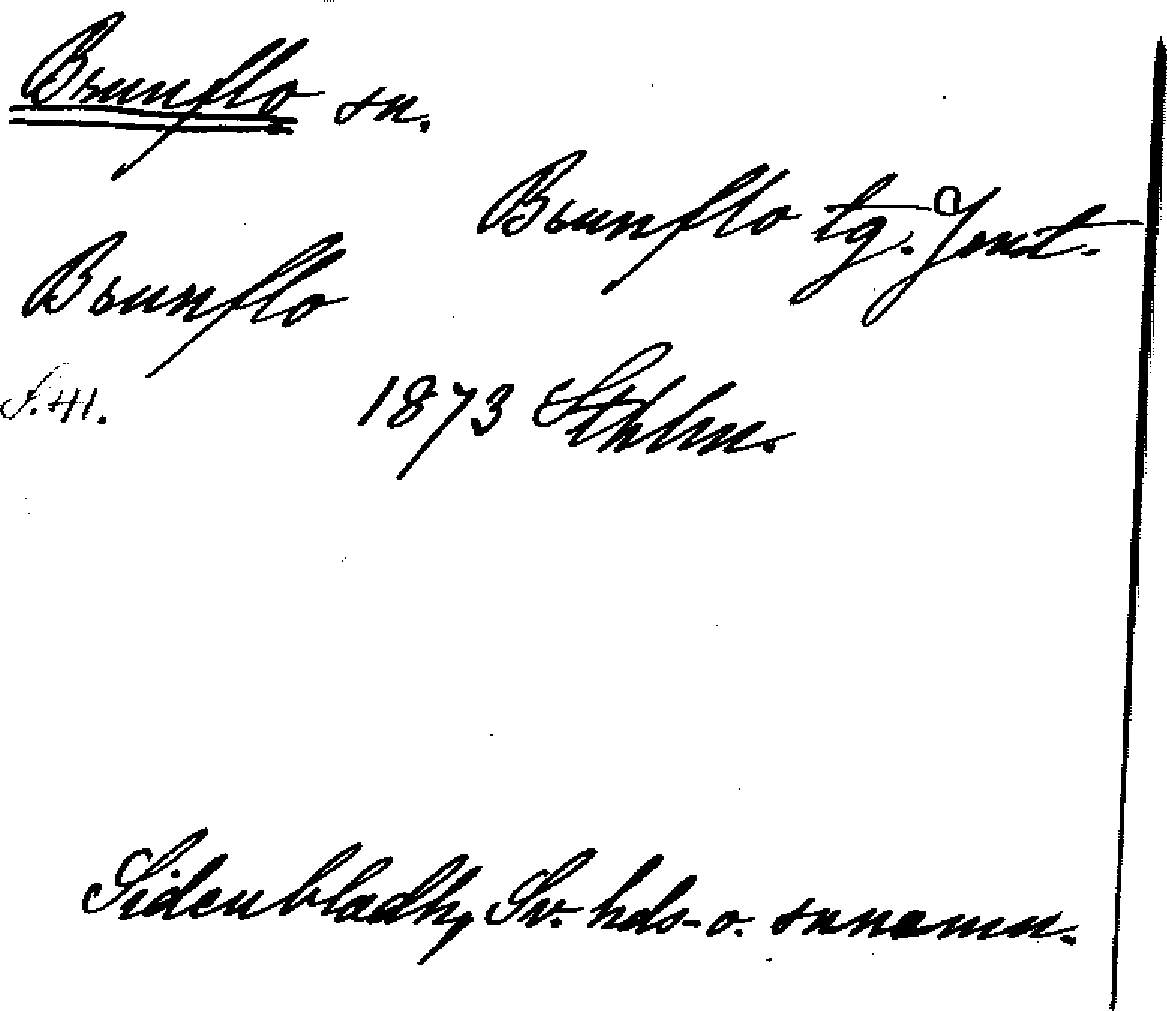 Brunflo sn.
Brunflo tg. Jemt.
Brunflo
S. 41. 1873 Sthlm.
Sidenbladh, Sv. hds- o. snnamn.